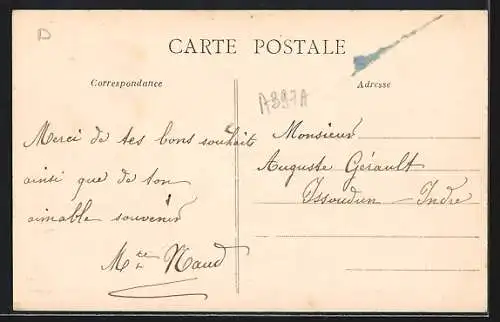 D
CARTE POSTALE
Correspondance
Adresse
A397A
Merci de tes bons souhaits
ainsi que de ton
aimable souvenir
Naud
Monsieur
Auguste Gérault
Issoudun - Indre